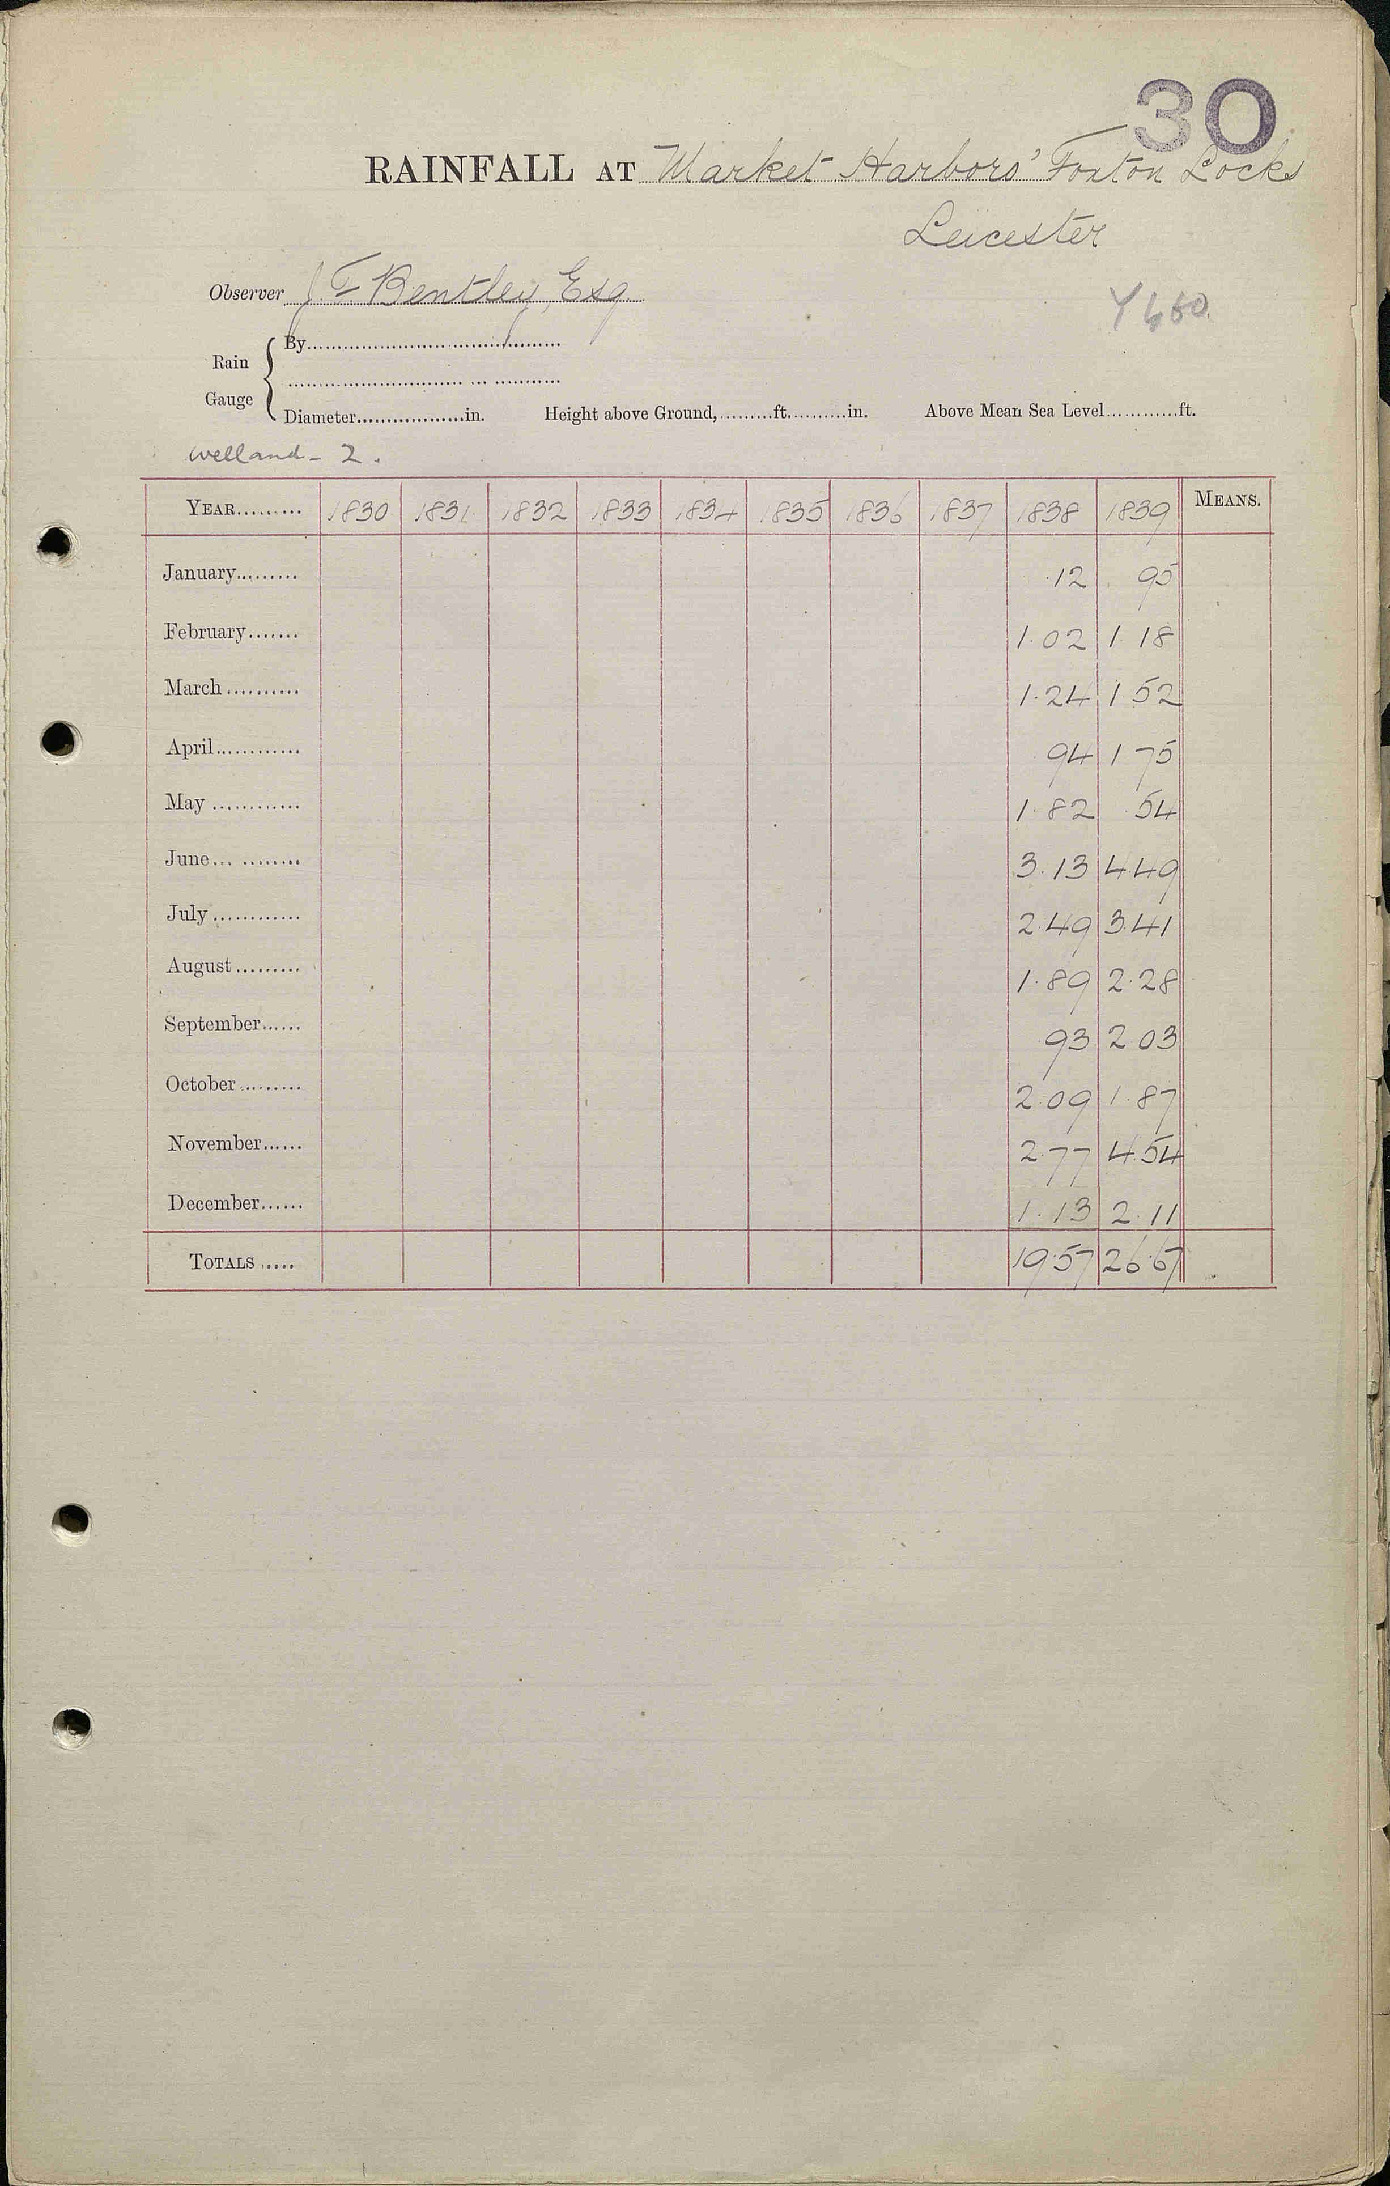 30
RAINFALL AT Market Harboro' Foxton Locks
Leicester
Observer J. F. Bentley, Esq.
Rain Gauge
By
Diameter in. Height above Ground, ft. in. Above Mean Sea Level ft.
Welland - 2.
YEAR 1830 1831 1832 1833 1834 1835 1836 1837 1838 1839 MEANS.
January .12 95
February 1.02 1 18
March 1.24 1 52
April 94 1 75
May 1.82 .54
June 3.13 4 49
July 2.49 3.41
August 1.89 2.28
September 93 2 03
October 2.09 1.87
November 2.77 4.54
December 1.13 2.11
TOTALS 19.57 26.67